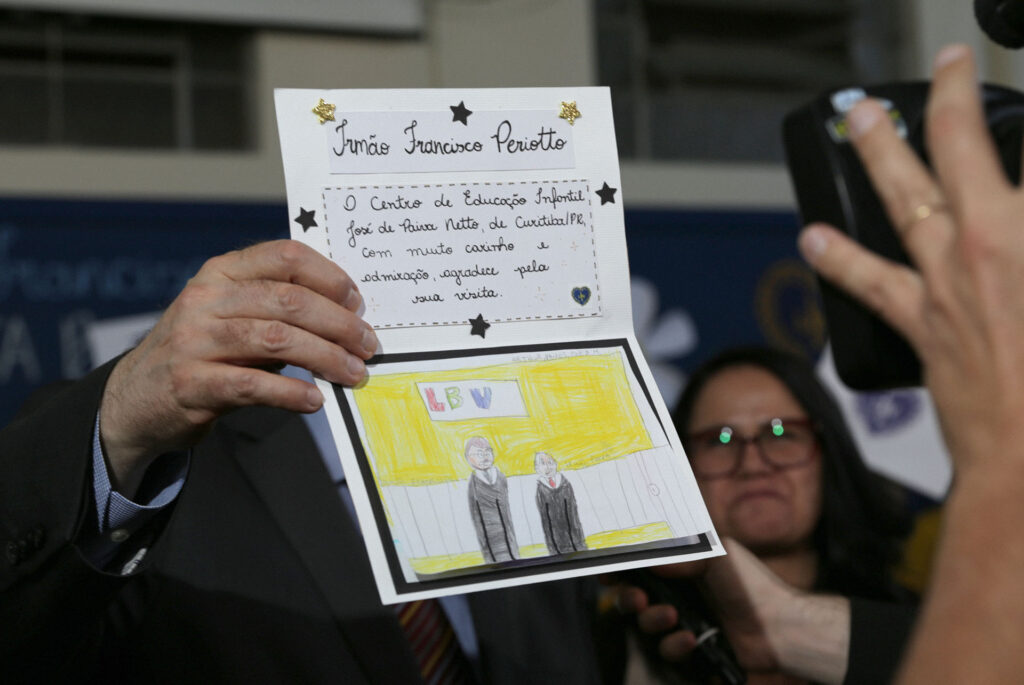 Irmão Francisco Periotto
O Centro de Educação Infantil
José de Paiva Netto, de Curitiba/PR,
com muito carinho e
admiração, agradece pela
sua visita.
LBV